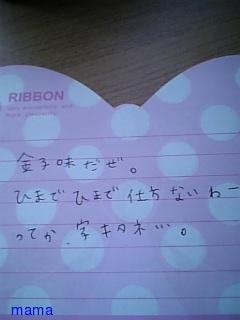 RIBBON
金子味だぜ。
ひまでひまで仕方ないわー
ってか、字キタネ…。
mama